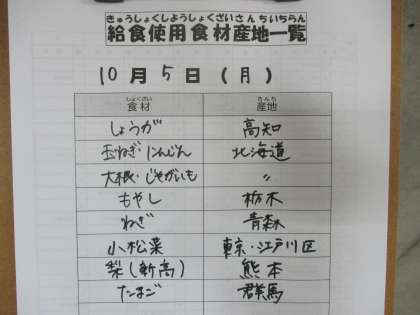 きゅうしょくしようしょくざいさんちいちらん
給食使用食材産地一覧
10月5日(月)
しょくざい さんち
食材 産地
しょうが 高知
玉ねぎ・にんじん 北海道
大根・じゃがいも 〃
もやし 栃木
ねぎ 青森
小松菜 東京・江戸川区
梨(新高) 熊本
たまご 群馬